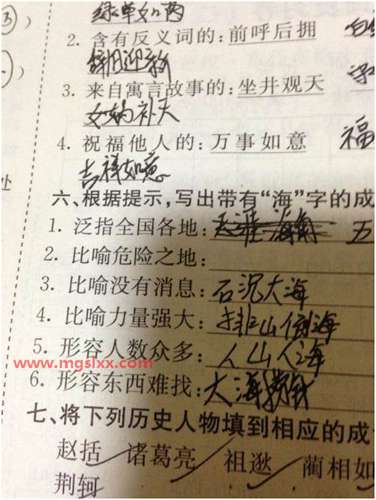 ③ 绿草如茵
2. 含有反义词的：前呼后拥
辞旧迎新
3. 来自寓言故事的：坐井观天
女娲补天
4. 祝福他人的：万事如意 福
吉祥如意
六、根据提示，写出带有“海”字的成
1. 泛指全国各地： 五
2. 比喻危险之地：
3. 比喻没有消息：石沉大海
4. 比喻力量强大：排山倒海
5. 形容人数众多：人山人海
www.mgslxx.com
6. 形容东西难找：大海捞针
七、将下列历史人物填到相应的成
处
赵括 诸葛亮 祖逖 蔺相如
荆轲